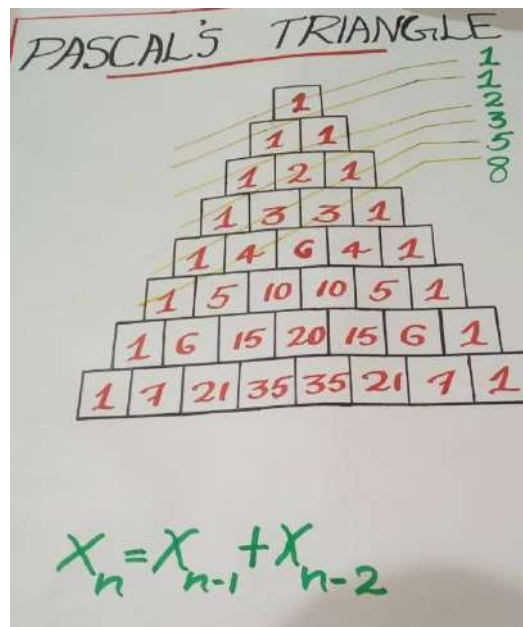 PASCAL'S TRIANGLE
1
1
2
3
5
8
1
1 1
1 2 1
1 3 3 1
1 4 6 4 1
1 5 10 10 5 1
1 6 15 20 15 6 1
1 7 21 35 35 21 7 1
Xn=Xn-1+Xn-2